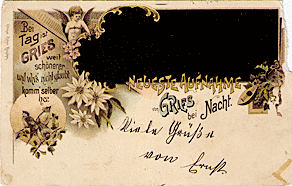 Bei
Tag ist
GRIES
weit
schöner
und wer's nicht glaubt
komm' selber
her.
NEUESTE AUFNAHME
von GRIES bei Nacht.
Viele Grüße
von Ernst